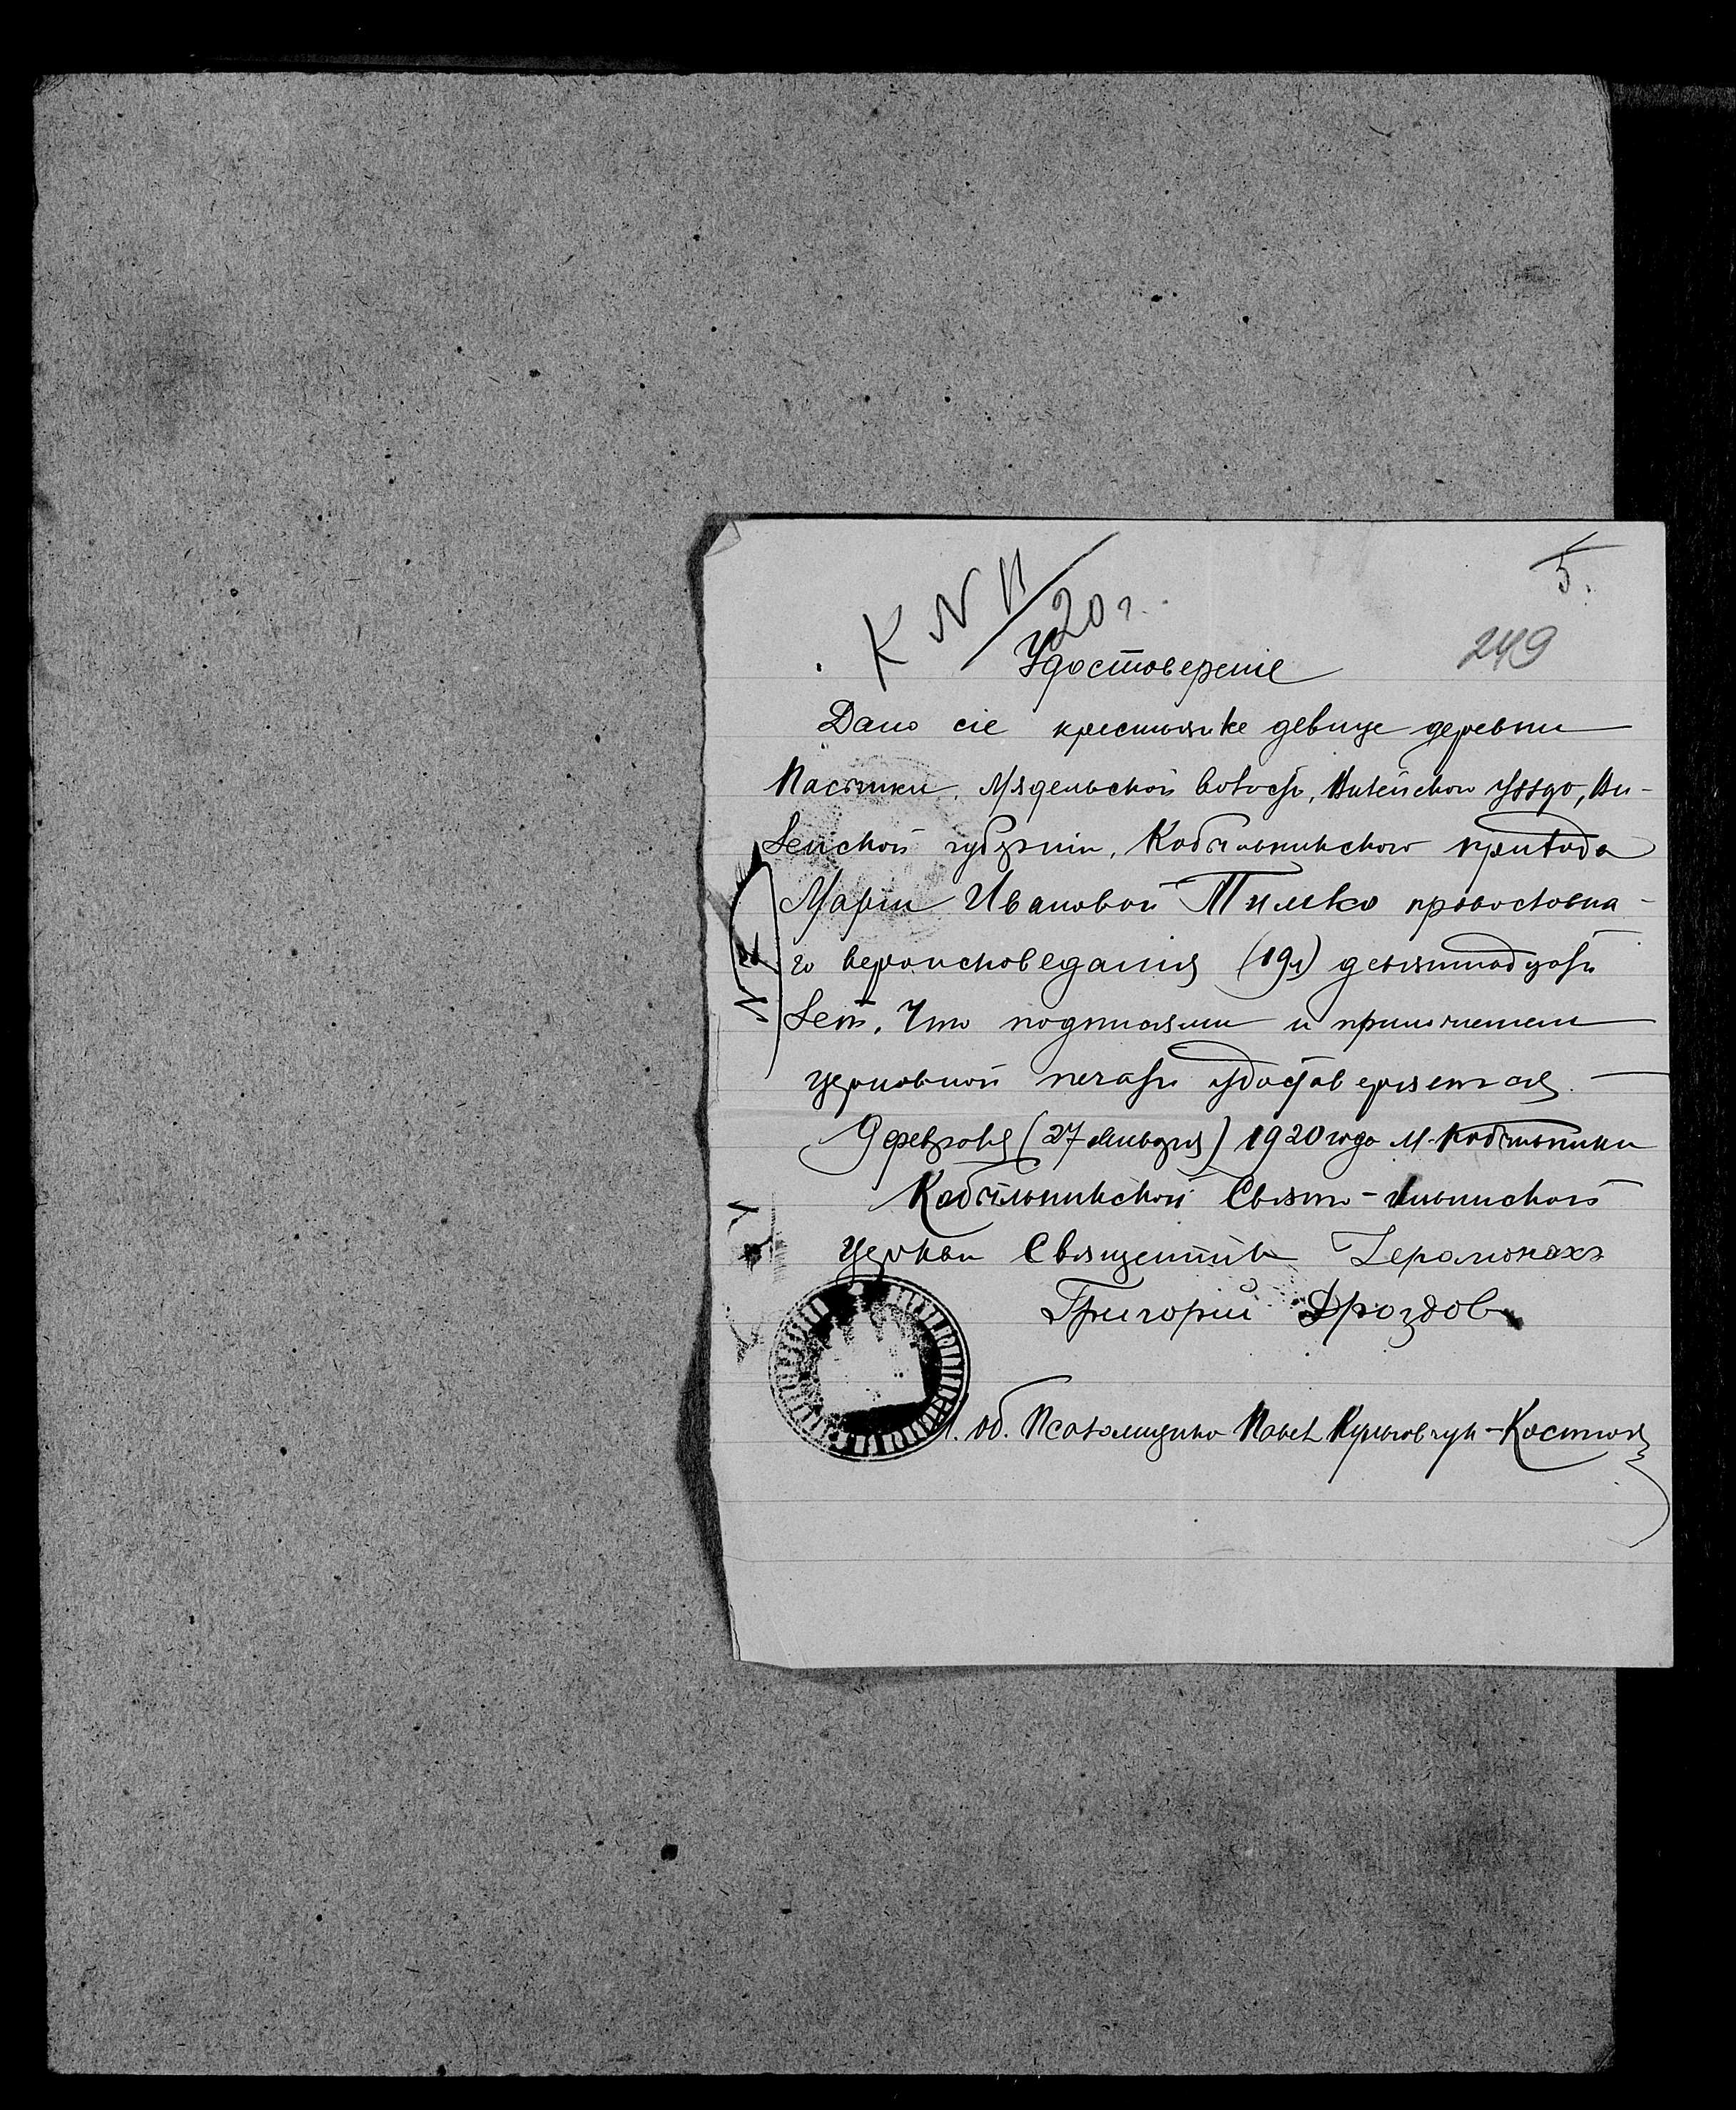 К N 11/20 г.
5.
249
Удостоверенie
Дано сiе крестьянке девице деревни
Пасынки, Мядельской волости, Вилейскои уезда, Ви-
ленской губернiи, Кобыльникского прихода
Марiи Ивановой Тимко православна-
го вероисповеданiя (19л) девятнадцать
лет, Что подписями и приложением
церковной печати удостоверяется.
9 февраля (27 января) 1920 года М. Кобыльники
Кобыльникской Свято-Ильинской
Церкви Священник Iеромонахъ
Григорiй Дроздов
И. об. Псаломщика Павел